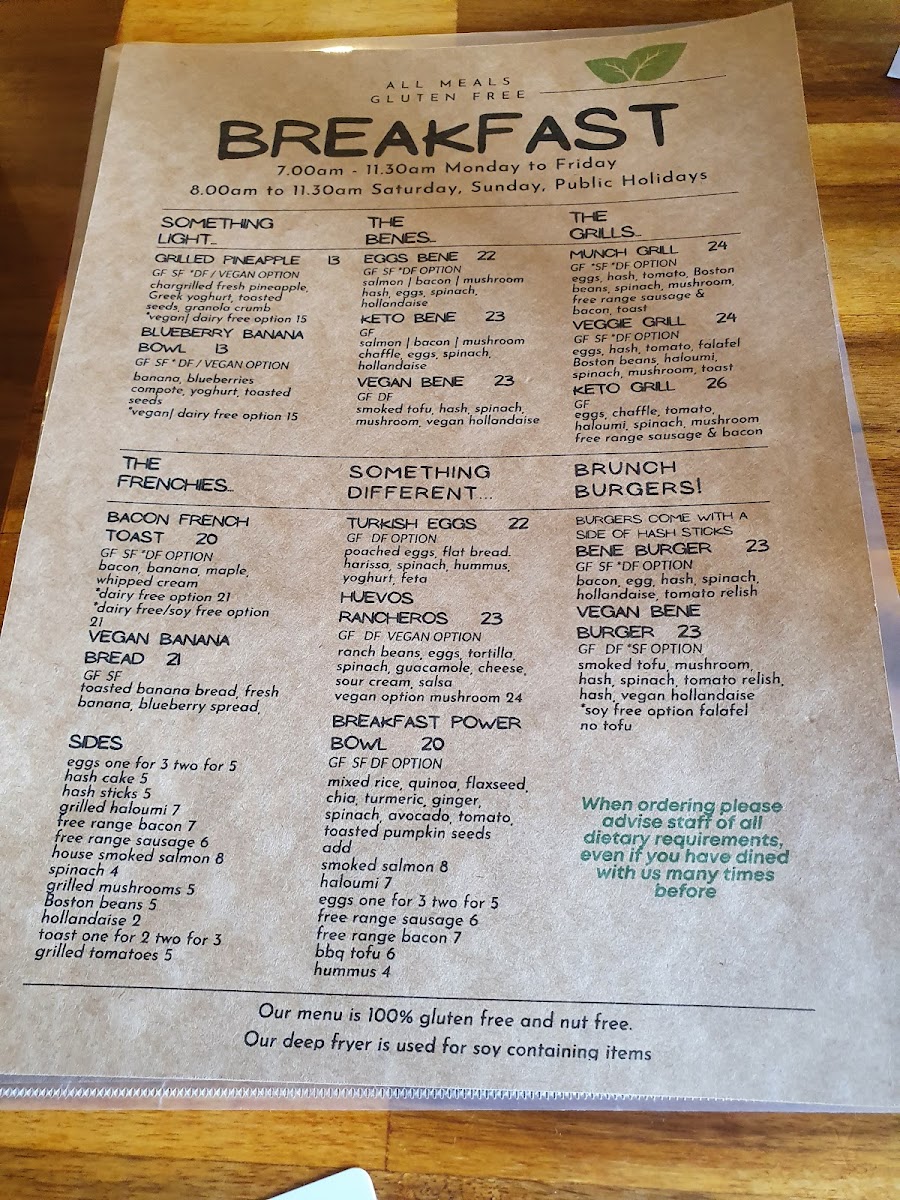 ALL MEALS
GLUTEN FREE
BREAKFAST
7.00am - 11.30am Monday to Friday
8.00am to 11.30am Saturday, Sunday, Public Holidays
SOMETHING
LIGHT...
GRILLED PINEAPPLE 13
GF SF *DF / VEGAN OPTION
chargrilled fresh pineapple,
Greek yoghurt, toasted
seeds, granola crumb
*vegan| dairy free option 15
BLUEBERRY BANANA
BOWL 13
GF SF * DF / VEGAN OPTION
banana, blueberries
compote, yoghurt, toasted
seeds
*vegan| dairy free option 15
THE
BENES...
EGGS BENE 22
GF SF *DF OPTION
salmon | bacon | mushroom
hash, eggs, spinach,
hollandaise
KETO BENE 23
GF
salmon | bacon | mushroom
chaffle, eggs, spinach,
hollandaise
VEGAN BENE 23
GF DF
smoked tofu, hash, spinach,
mushroom, vegan hollandaise
THE
GRILLS...
MUNCH GRILL 24
GF *SF *DF OPTION
eggs, hash, tomato, Boston
beans, spinach, mushroom,
free range sausage &
bacon, toast
VEGGIE GRILL 24
GF SF *DF OPTION
eggs, hash, tomato, falafel
Boston beans, haloumi,
spinach, mushroom, toast
KETO GRILL 26
GF
eggs, chaffle, tomato,
haloumi, spinach, mushroom
free range sausage & bacon
THE
FRENCHIES...
BACON FRENCH
TOAST 20
GF SF *DF OPTION
bacon, banana, maple,
whipped cream
*dairy free option 21
*dairy free/soy free option
21
VEGAN BANANA
BREAD 21
GF SF
toasted banana bread, fresh
banana, blueberry spread,
SIDES
eggs one for 3 two for 5
hash cake 5
hash sticks 5
grilled haloumi 7
free range bacon 7
free range sausage 6
house smoked salmon 8
spinach 4
grilled mushrooms 5
Boston beans 5
hollandaise 2
toast one for 2 two for 3
grilled tomatoes 5
SOMETHING
DIFFERENT...
TURKISH EGGS 22
GF DF OPTION
poached eggs, flat bread.
harissa, spinach, hummus,
yoghurt, feta
HUEVOS
RANCHEROS 23
GF DF VEGAN OPTION
ranch beans, eggs, tortilla,
spinach, guacamole, cheese,
sour cream, salsa
vegan option mushroom 24
BREAKFAST POWER
BOWL 20
GF SF DF OPTION
mixed rice, quinoa, flaxseed,
chia, turmeric, ginger,
spinach, avocado, tomato,
toasted pumpkin seeds
add
smoked salmon 8
haloumi 7
eggs one for 3 two for 5
free range sausage 6
free range bacon 7
bbq tofu 6
hummus 4
BRUNCH
BURGERS!
BURGERS COME WITH A
SIDE OF HASH STICKS
BENE BURGER 23
GF SF *DF OPTION
bacon, egg, hash, spinach,
hollandaise, tomato relish
VEGAN BENE
BURGER 23
GF DF *SF OPTION
smoked tofu, mushroom,
hash, spinach, tomato relish,
hash, vegan hollandaise
*soy free option falafel
no tofu
When ordering please
advise staff of all
dietary requirements,
even if you have dined
with us many times
before
Our menu is 100% gluten free and nut free.
Our deep fryer is used for soy containing items